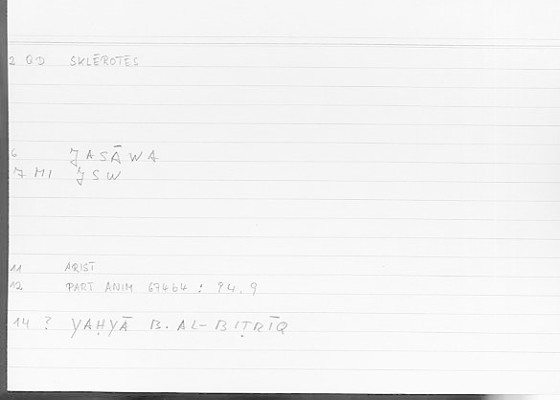 2 QD SKLĒROTES
6 JASĀWA
7 MI JSW
11 ARIST
12 PART ANIM 674b4 : 94.9
14 ? YAḤYĀ B. AL-BIṬRĪQ